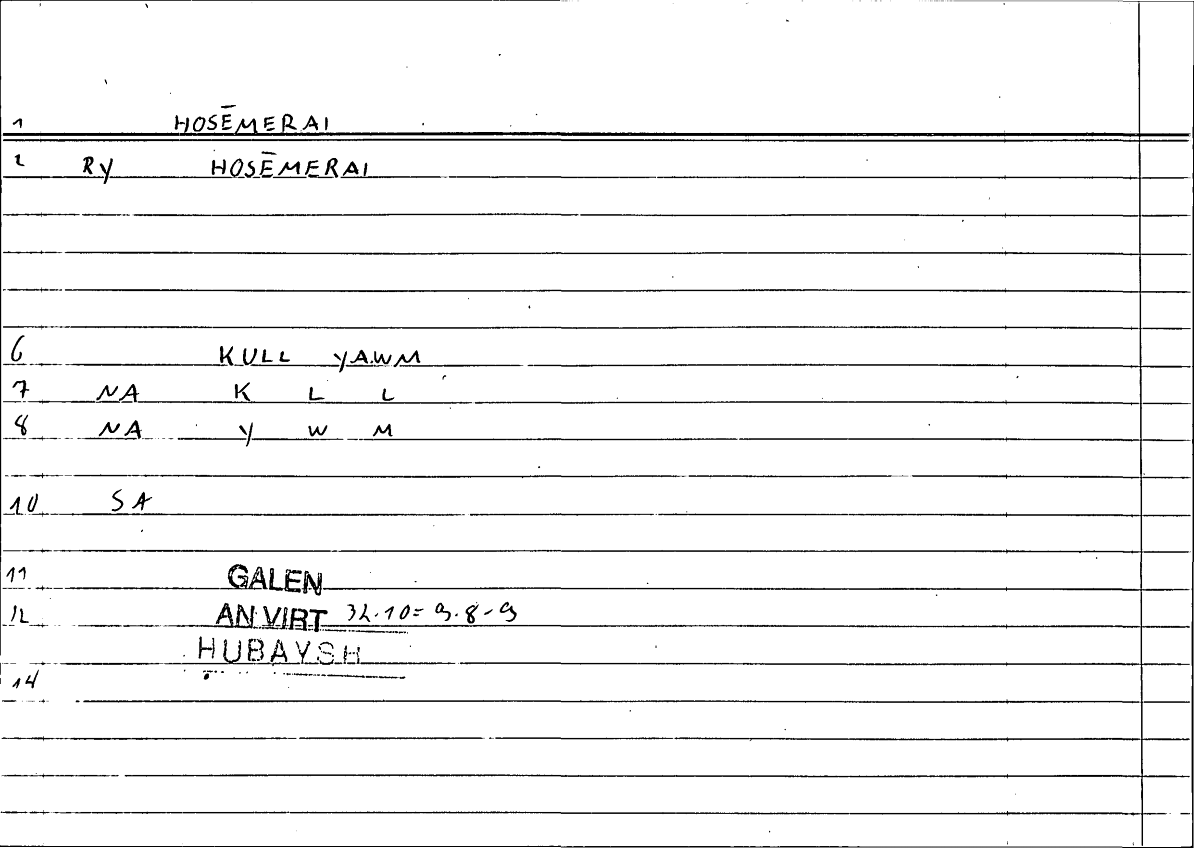 1 HOSĒMERAI
2 RY HOSĒMERAI
6 KULL YAWM
7 NA K L L
8 NA Y W M
10 SA
11 GALEN
12 AN VIRT 32.10 = 9.8-9
HUBAYSH
14